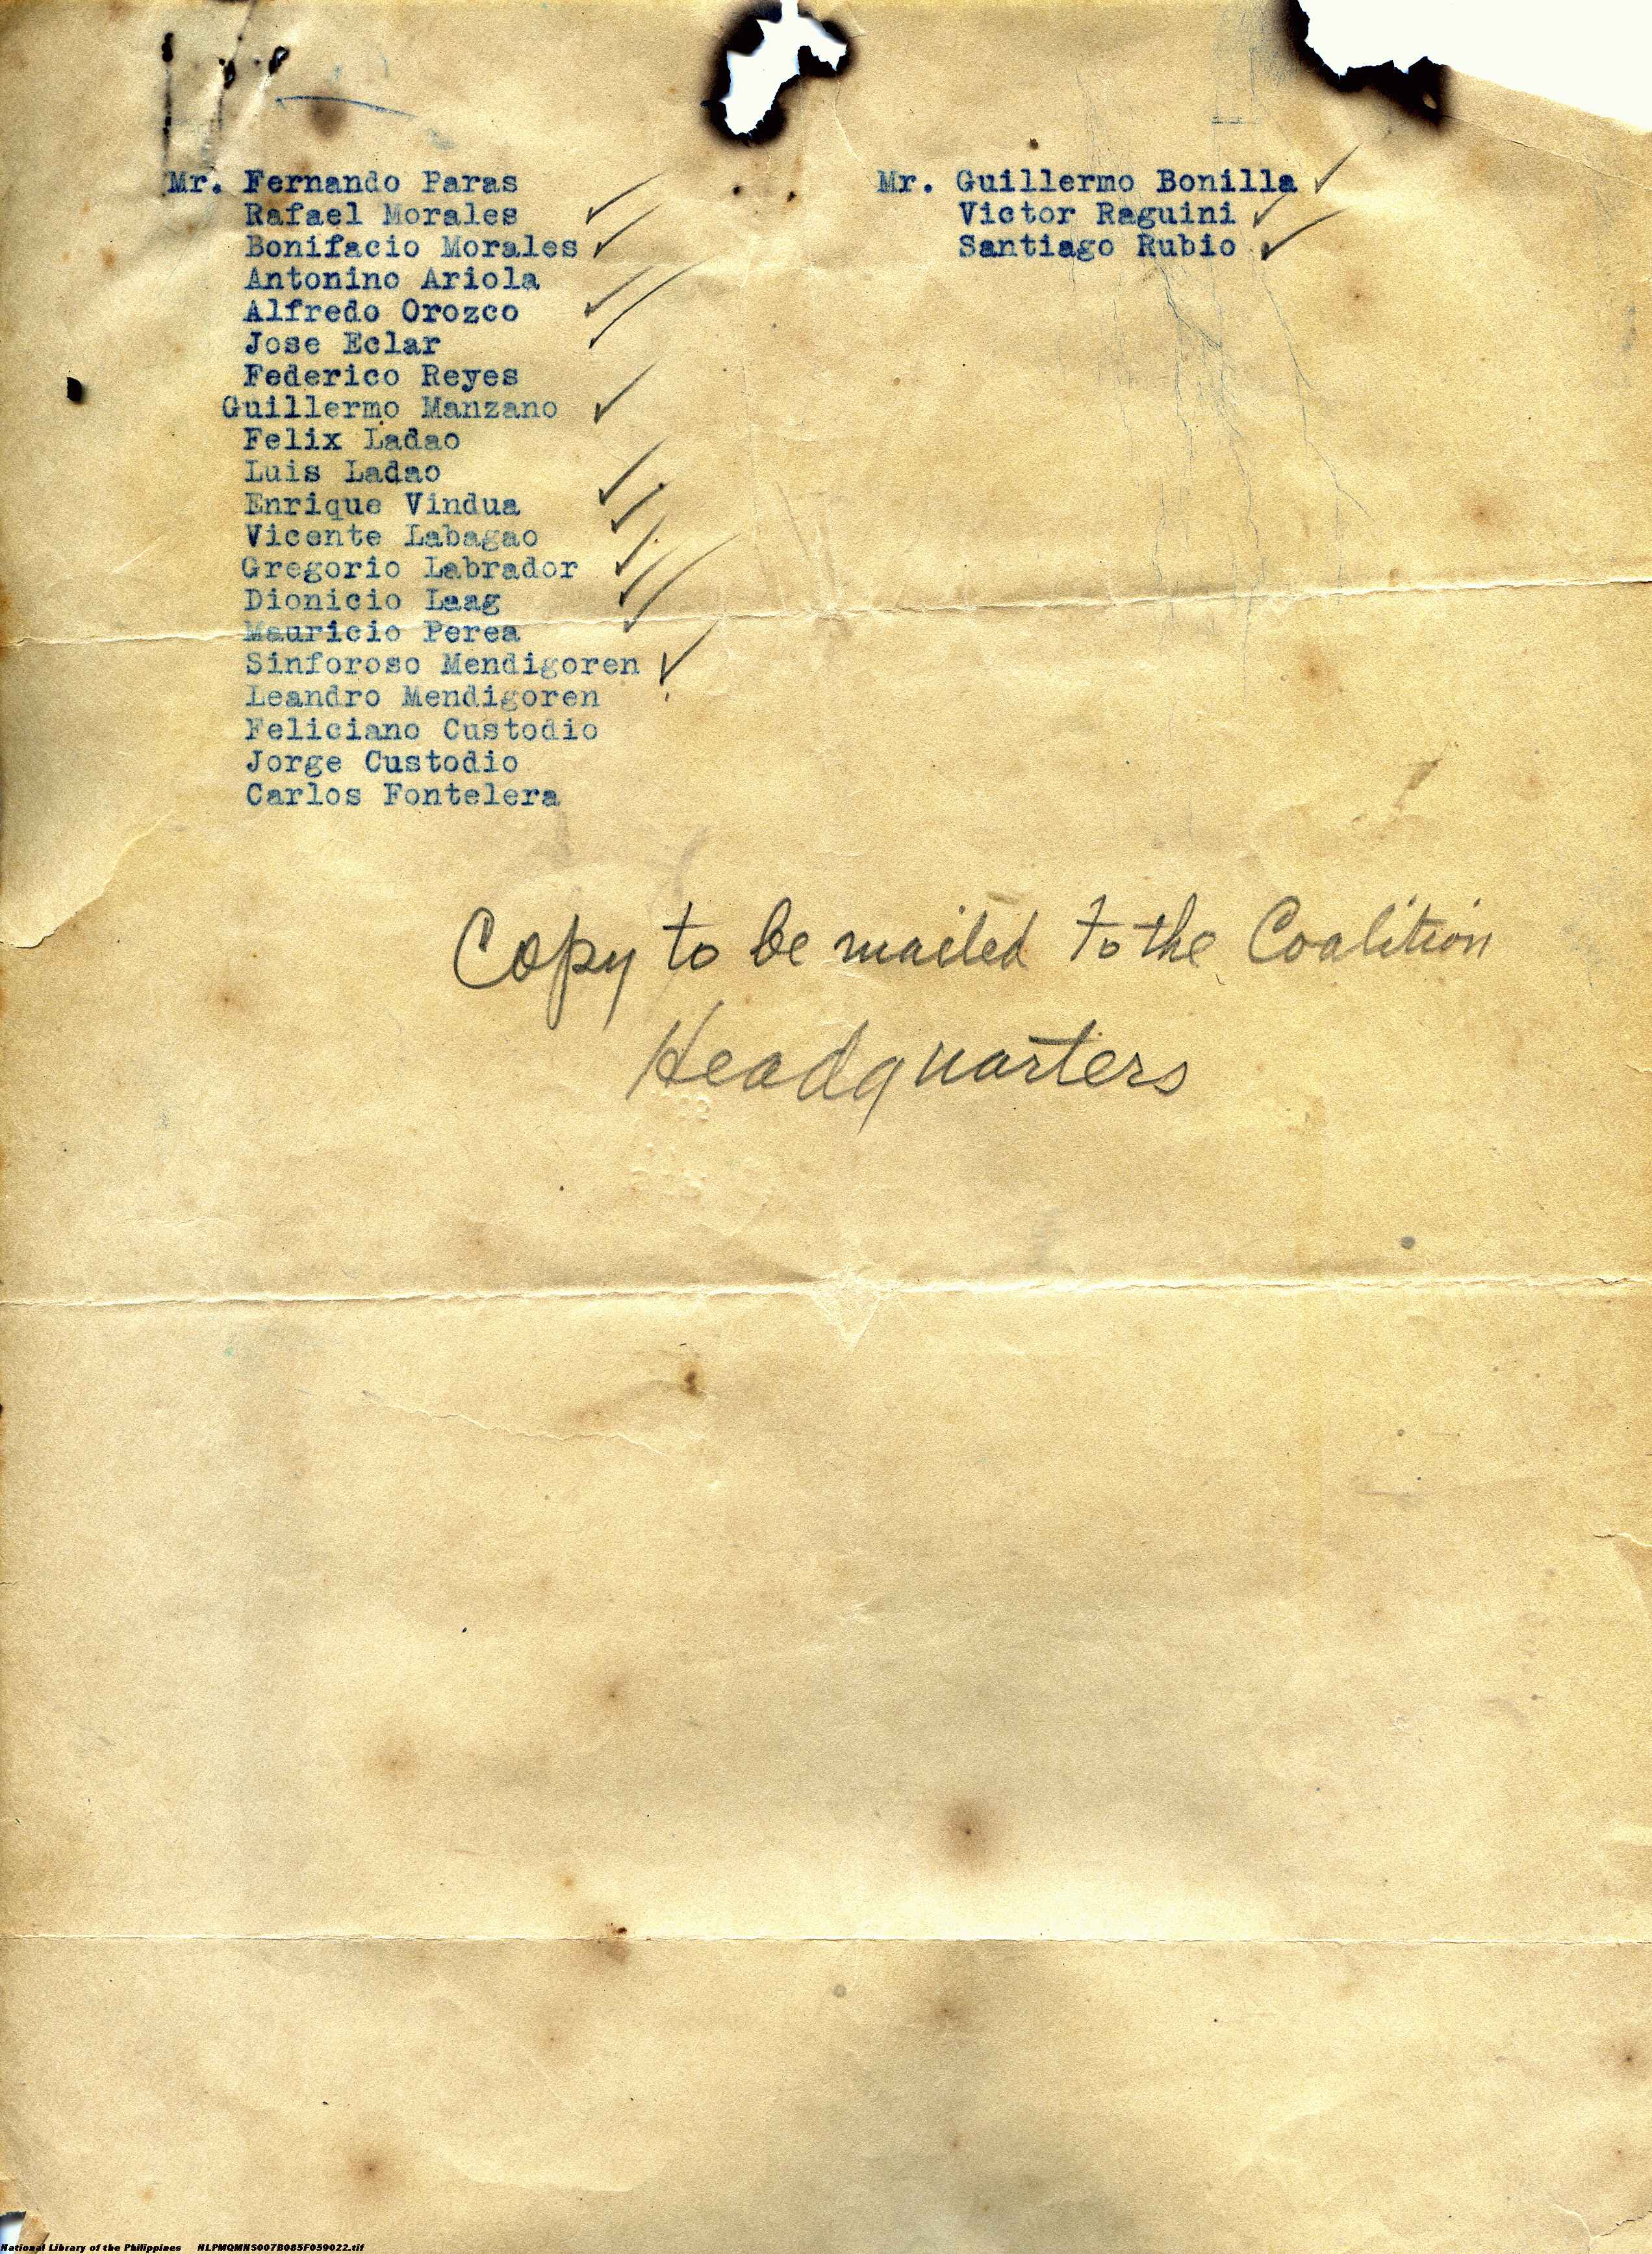 Mr. Fernando Paras
Rafael Morales
Bonifacio Morales
Antonino Ariola
Alfredo Orozco
Jose Eclar
Federico Reyes
Guillermo Manzano
Felix Ladao
Luis Ladao
Enrique Vindua
Vicente Labagao
Gregorio Labrador
Dionicio Laag
Mauricio Perea
Sinforoso Mendigoren
Leandro Mendigoren
Feliciano Custodio
Jorge Custodio
Carlos Fontelera
Mr. Guillermo Bonilla
Victor Raguini
Santiago Rubio
Copy to be mailed to the Coalition
Headquarters
National Library of the Philippines NLPMQMNS007B085F059022.tif